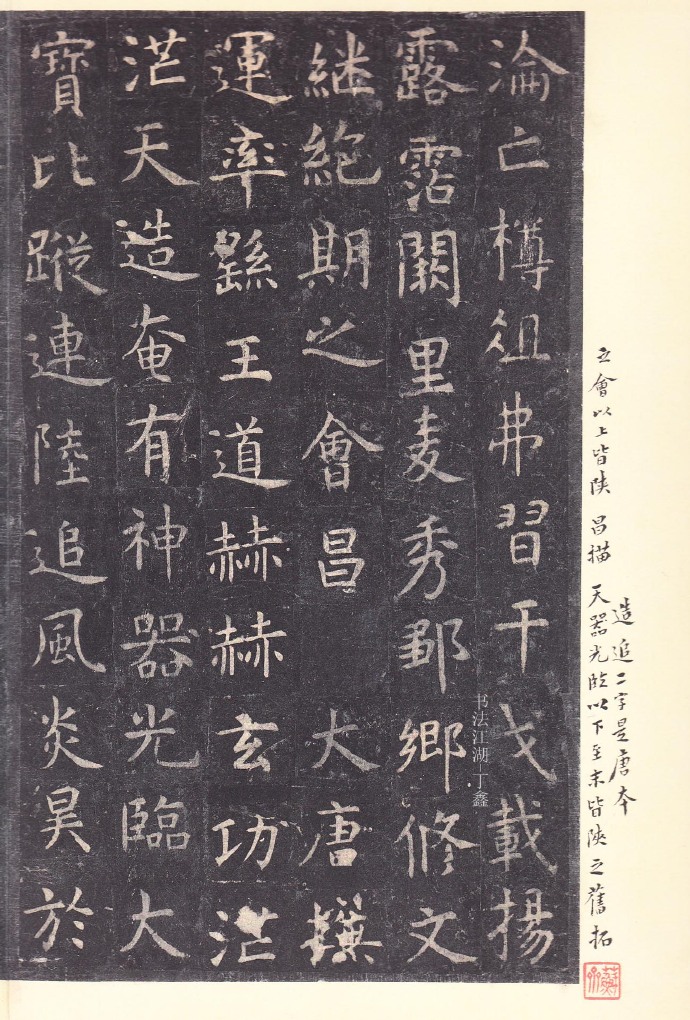 立會以上皆陝 昌描 天器光臨以下至末皆陝之舊拓
造追二字是唐本
淪亡樽俎弗習干戈載揚
露霑闕里麦秀鄒鄉修文
継絶期之會昌 大唐撰
運率繇王道赫赫玄功茫
茫天造奄有神器光臨大
寶比蹤連陸追風炎昊於
书法江湖 丁鑫